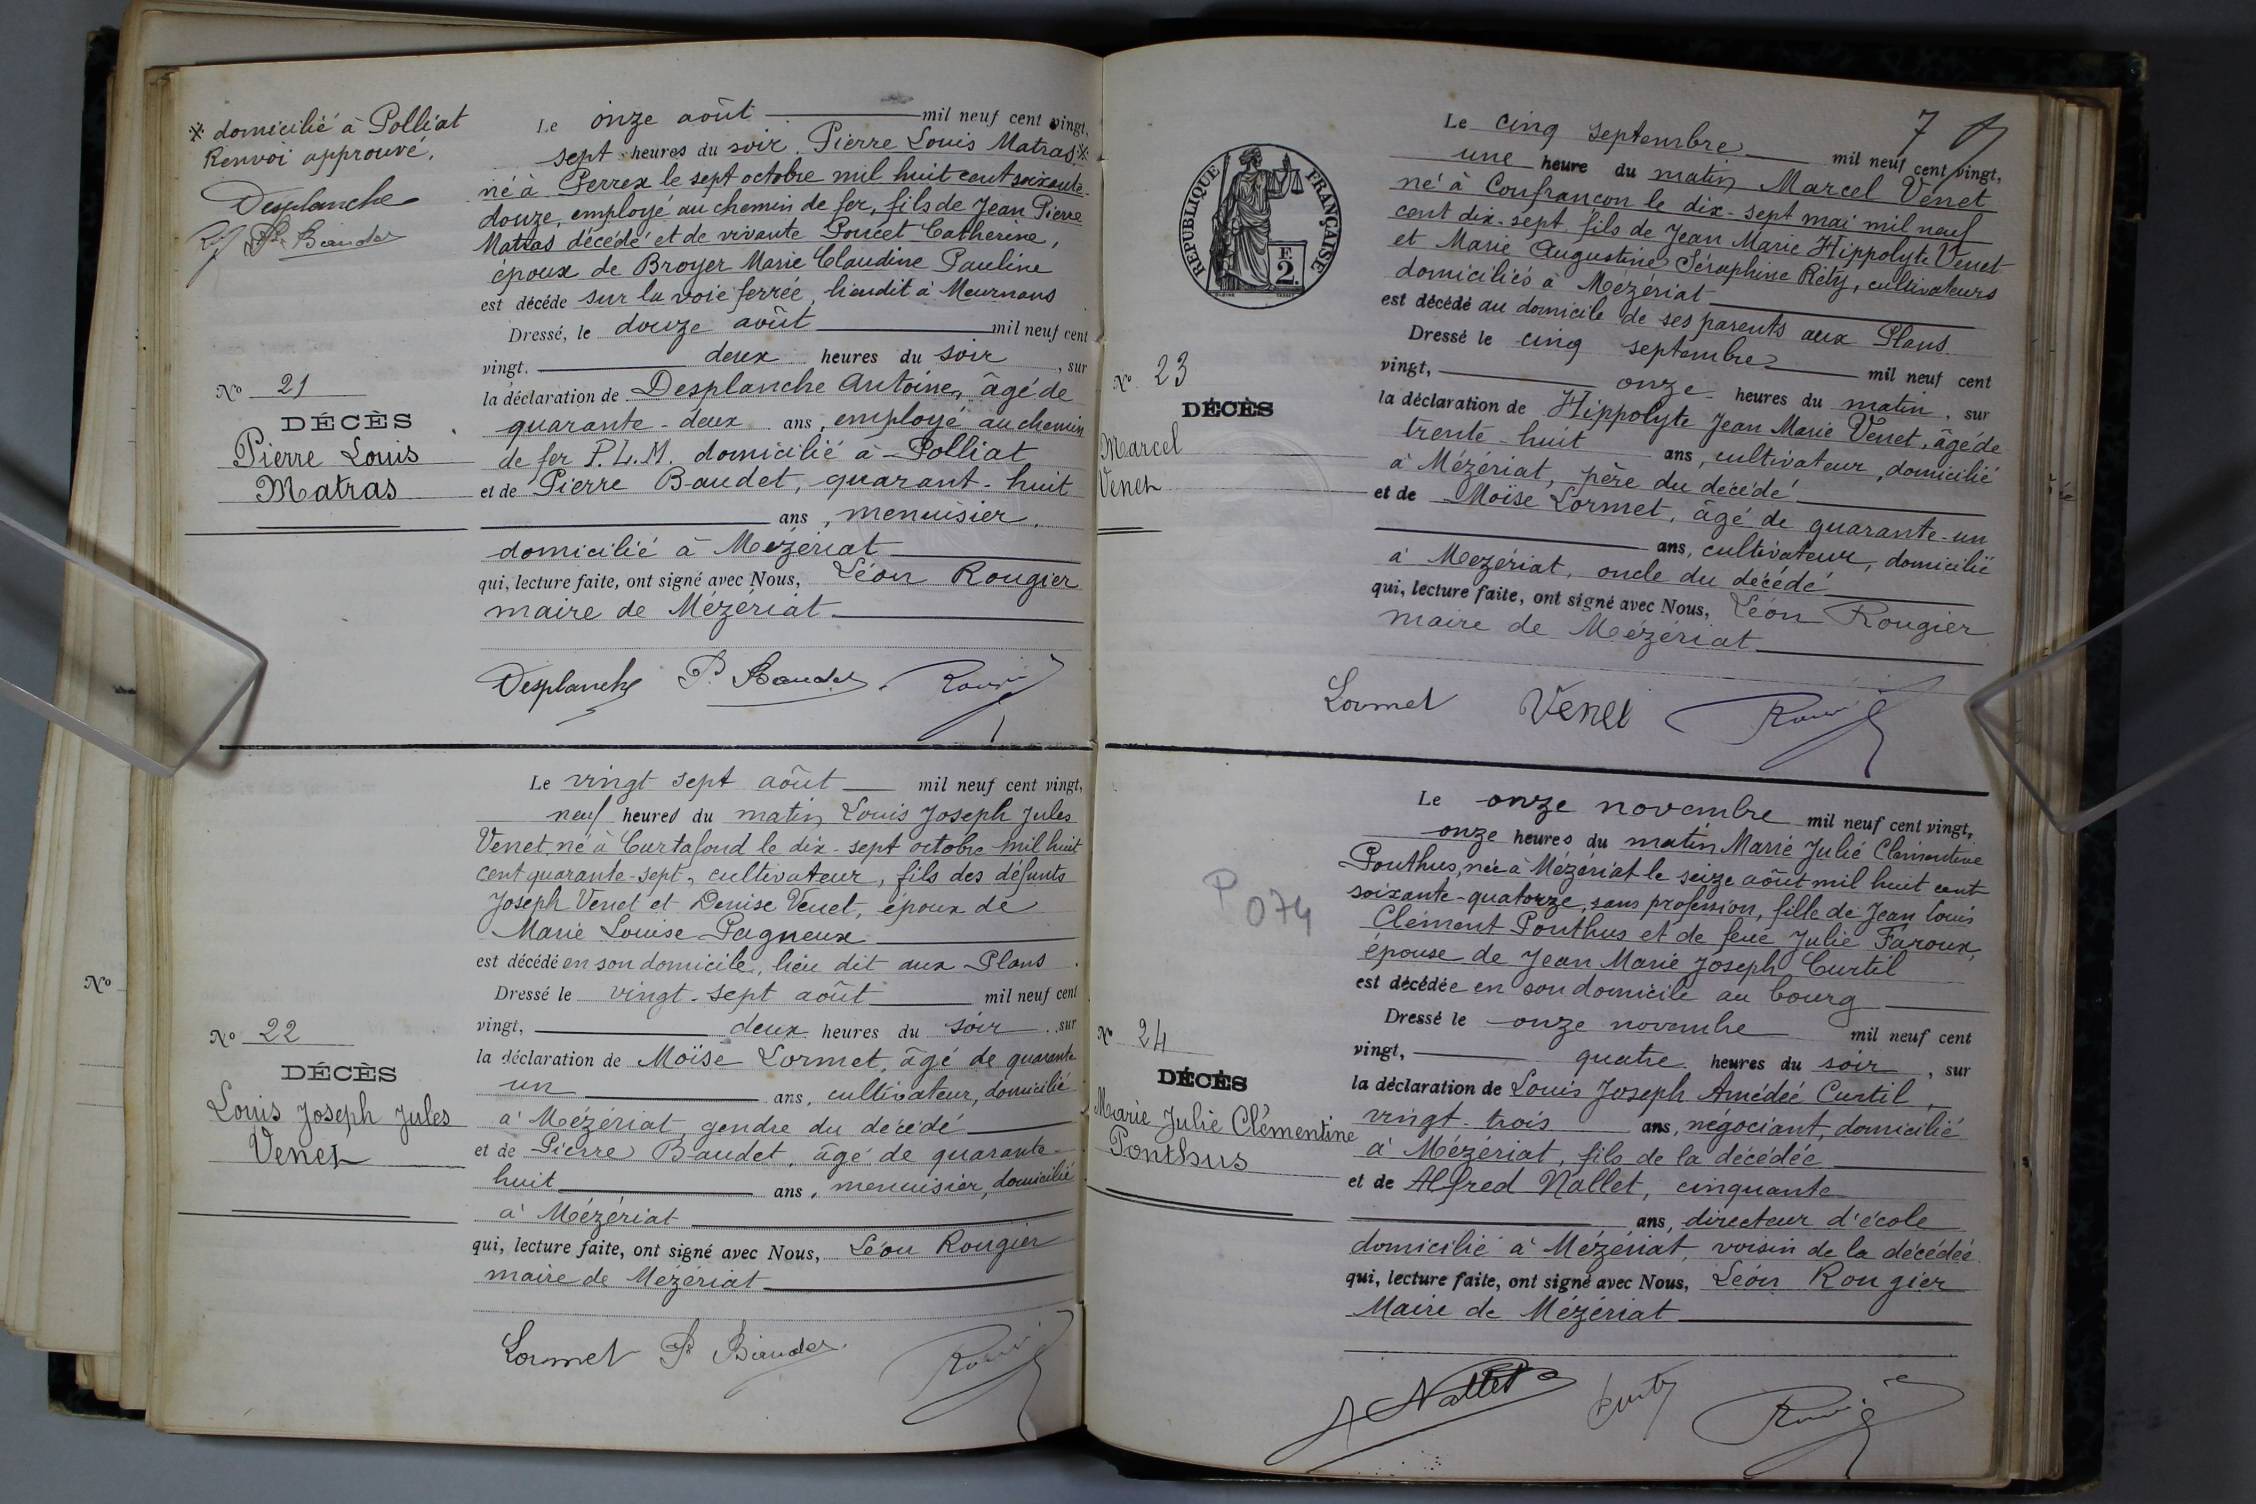 ※ domicilié à Polliat
Renvoi approuvé.
Desplanche
P. Baudet
Nº 21
DÉCÈS
Pierre Louis
Matras
Le onze août mil neuf cent vingt,
sept heures du soir. Pierre Louis Matras ※
né à Perrex le sept octobre mil huit cent soixante-
douze, employé au chemin de fer, fils de Jean Pierre
Matras décédé et de vivante Poncet Catherine,
époux de Broyer Marie Claudine Pauline
est décédé sur la voie ferrée, lieudit à Meurnans
Dressé, le douze août mil neuf cent
vingt. deux heures du soir, sur
la déclaration de Desplanche Antoine, âgé de
quarante-deux ans, employé au chemin
de fer P.L.M. domicilié à Polliat
et de Pierre Baudet, quarant-huit
ans, menuisier,
domicilié à Mézériat
qui, lecture faite, ont signé avec Nous, Léon Rougier
maire de Mézériat
Desplanche P. Baudet
Nº
Nº 22
DÉCÈS
Louis Joseph Jules
Venet
Le vingt sept août mil neuf cent vingt,
neuf heures du matin Louis Joseph Jules
Venet, né à Curtafond le dix-sept octobre mil huit
cent quarante-sept, cultivateur, fils des défunts
Joseph Venet et Denise Venet, époux de
Marie Louise Pagneux
est décédé en son domicile, lieu dit aux Plans.
Dressé le vingt-sept août mil neuf cent
vingt, deux heures du soir, sur
la déclaration de Moïse Lormet, âgé de quarante
un ans, cultivateur, domicilié
à Mézériat, gendre du décédé
et de Pierre Baudet, âgé de quarante-
huit ans, menuisier, domicilié
à Mézériat
qui, lecture faite, ont signé avec Nous, Léon Rougier
maire de Mézériat
Lormet P. Baudet
7
RÉPUBLIQUE FRANÇAISE
F.
2.
Nº 23
DÉCÈS
Marcel
Venet
Le cinq septembre mil neuf cent vingt,
une heure du matin Marcel Venet
né à Confrançon le dix-sept mai mil neuf
cent dix-sept fils de Jean Marie Hippolyte Venet
et Marie Augustine Séraphine Réty, cultivateurs
domiciliés à Mézériat
est décédé au domicile de ses parents aux Plans.
Dressé le cinq septembre mil neuf cent
vingt, onze heures du matin, sur
la déclaration de Hippolyte Jean Marie Venet, âgé de
trente-huit ans, cultivateur, domicilié
à Mézériat, père du décédé
et de Moïse Lormet, âgé de quarante-un
ans, cultivateur, domicilié
à Mezériat, oncle du décédé
qui, lecture faite, ont signé avec Nous, Léon Rougier
maire de Mézériat
Lormet Venet
P 074
Nº 24
DÉCÈS
Marie Julie Clémentine
Ponthus
Le onze novembre mil neuf cent vingt,
onze heures du matin Marie Julie Clémentine
Ponthus, née à Mézériat le seize août mil huit cent
soixante-quatorze, sans profession, fille de Jean Louis
Clément Ponthus et de feue Julie Faroux,
épouse de Jean Marie Joseph Curtil
est décédée en son domicile au bourg
Dressé le onze novembre mil neuf cent
vingt, quatre heures du soir, sur
la déclaration de Louis Joseph Amédée Curtil,
vingt-trois ans, négociant, domicilié
à Mézériat, fils de la décédée
et de Alfred Nallet, cinquante
ans, directeur d'école
domicilié à Mézériat, voisin de la décédée
qui, lecture faite, ont signé avec Nous, Léon Rougier
Maire de Mézériat
A Nallet